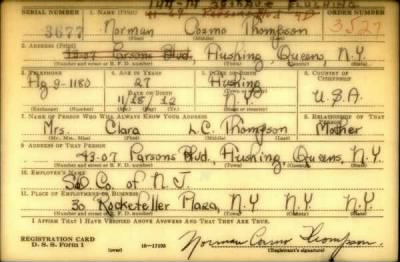 SERIAL NUMBER 1. NAME (Print) ORDER NUMBER
3677 Norman Cozmo Thompson 3527
(First) (Middle) (Last)
2. ADDRESS (Print)
Parsons Blvd, Flushing, Queens, N.Y.
(Number and street or R. F. D. number) (Town) (County) (State)
3. TELEPHONE 4. AGE IN YEARS 5. PLACE OF BIRTH 6. COUNTRY OF CITIZENSHIP
Fl 9-1180 27 Flushing
DATE OF BIRTH
11/15/12 N.Y. U.S.A.
7. NAME OF PERSON WHO WILL ALWAYS KNOW YOUR ADDRESS 8. RELATIONSHIP OF THAT PERSON
Mrs. Clara L.C. Thompson Mother
(Mr., Mrs., Miss) (First) (Middle) (Last)
9. ADDRESS OF THAT PERSON
43-07 Parsons Blvd., Flushing, Queens, N.Y.
(Number and street or R. F. D. number) (Town) (County) (State)
10. EMPLOYER'S NAME
Co. of N.J.
11. PLACE OF EMPLOYMENT OR BUSINESS
30 Rockefeller Plaza, N.Y N.Y. N.Y.
(Number and street or R. F. D. number) (Town) (County) (State)
I AFFIRM THAT I HAVE VERIFIED ABOVE ANSWERS AND THAT THEY ARE TRUE.
REGISTRATION CARD
D. S. S. Form 1 (over) 16—17105 Norman Cozmo Thompson.
(Registrant's signature)